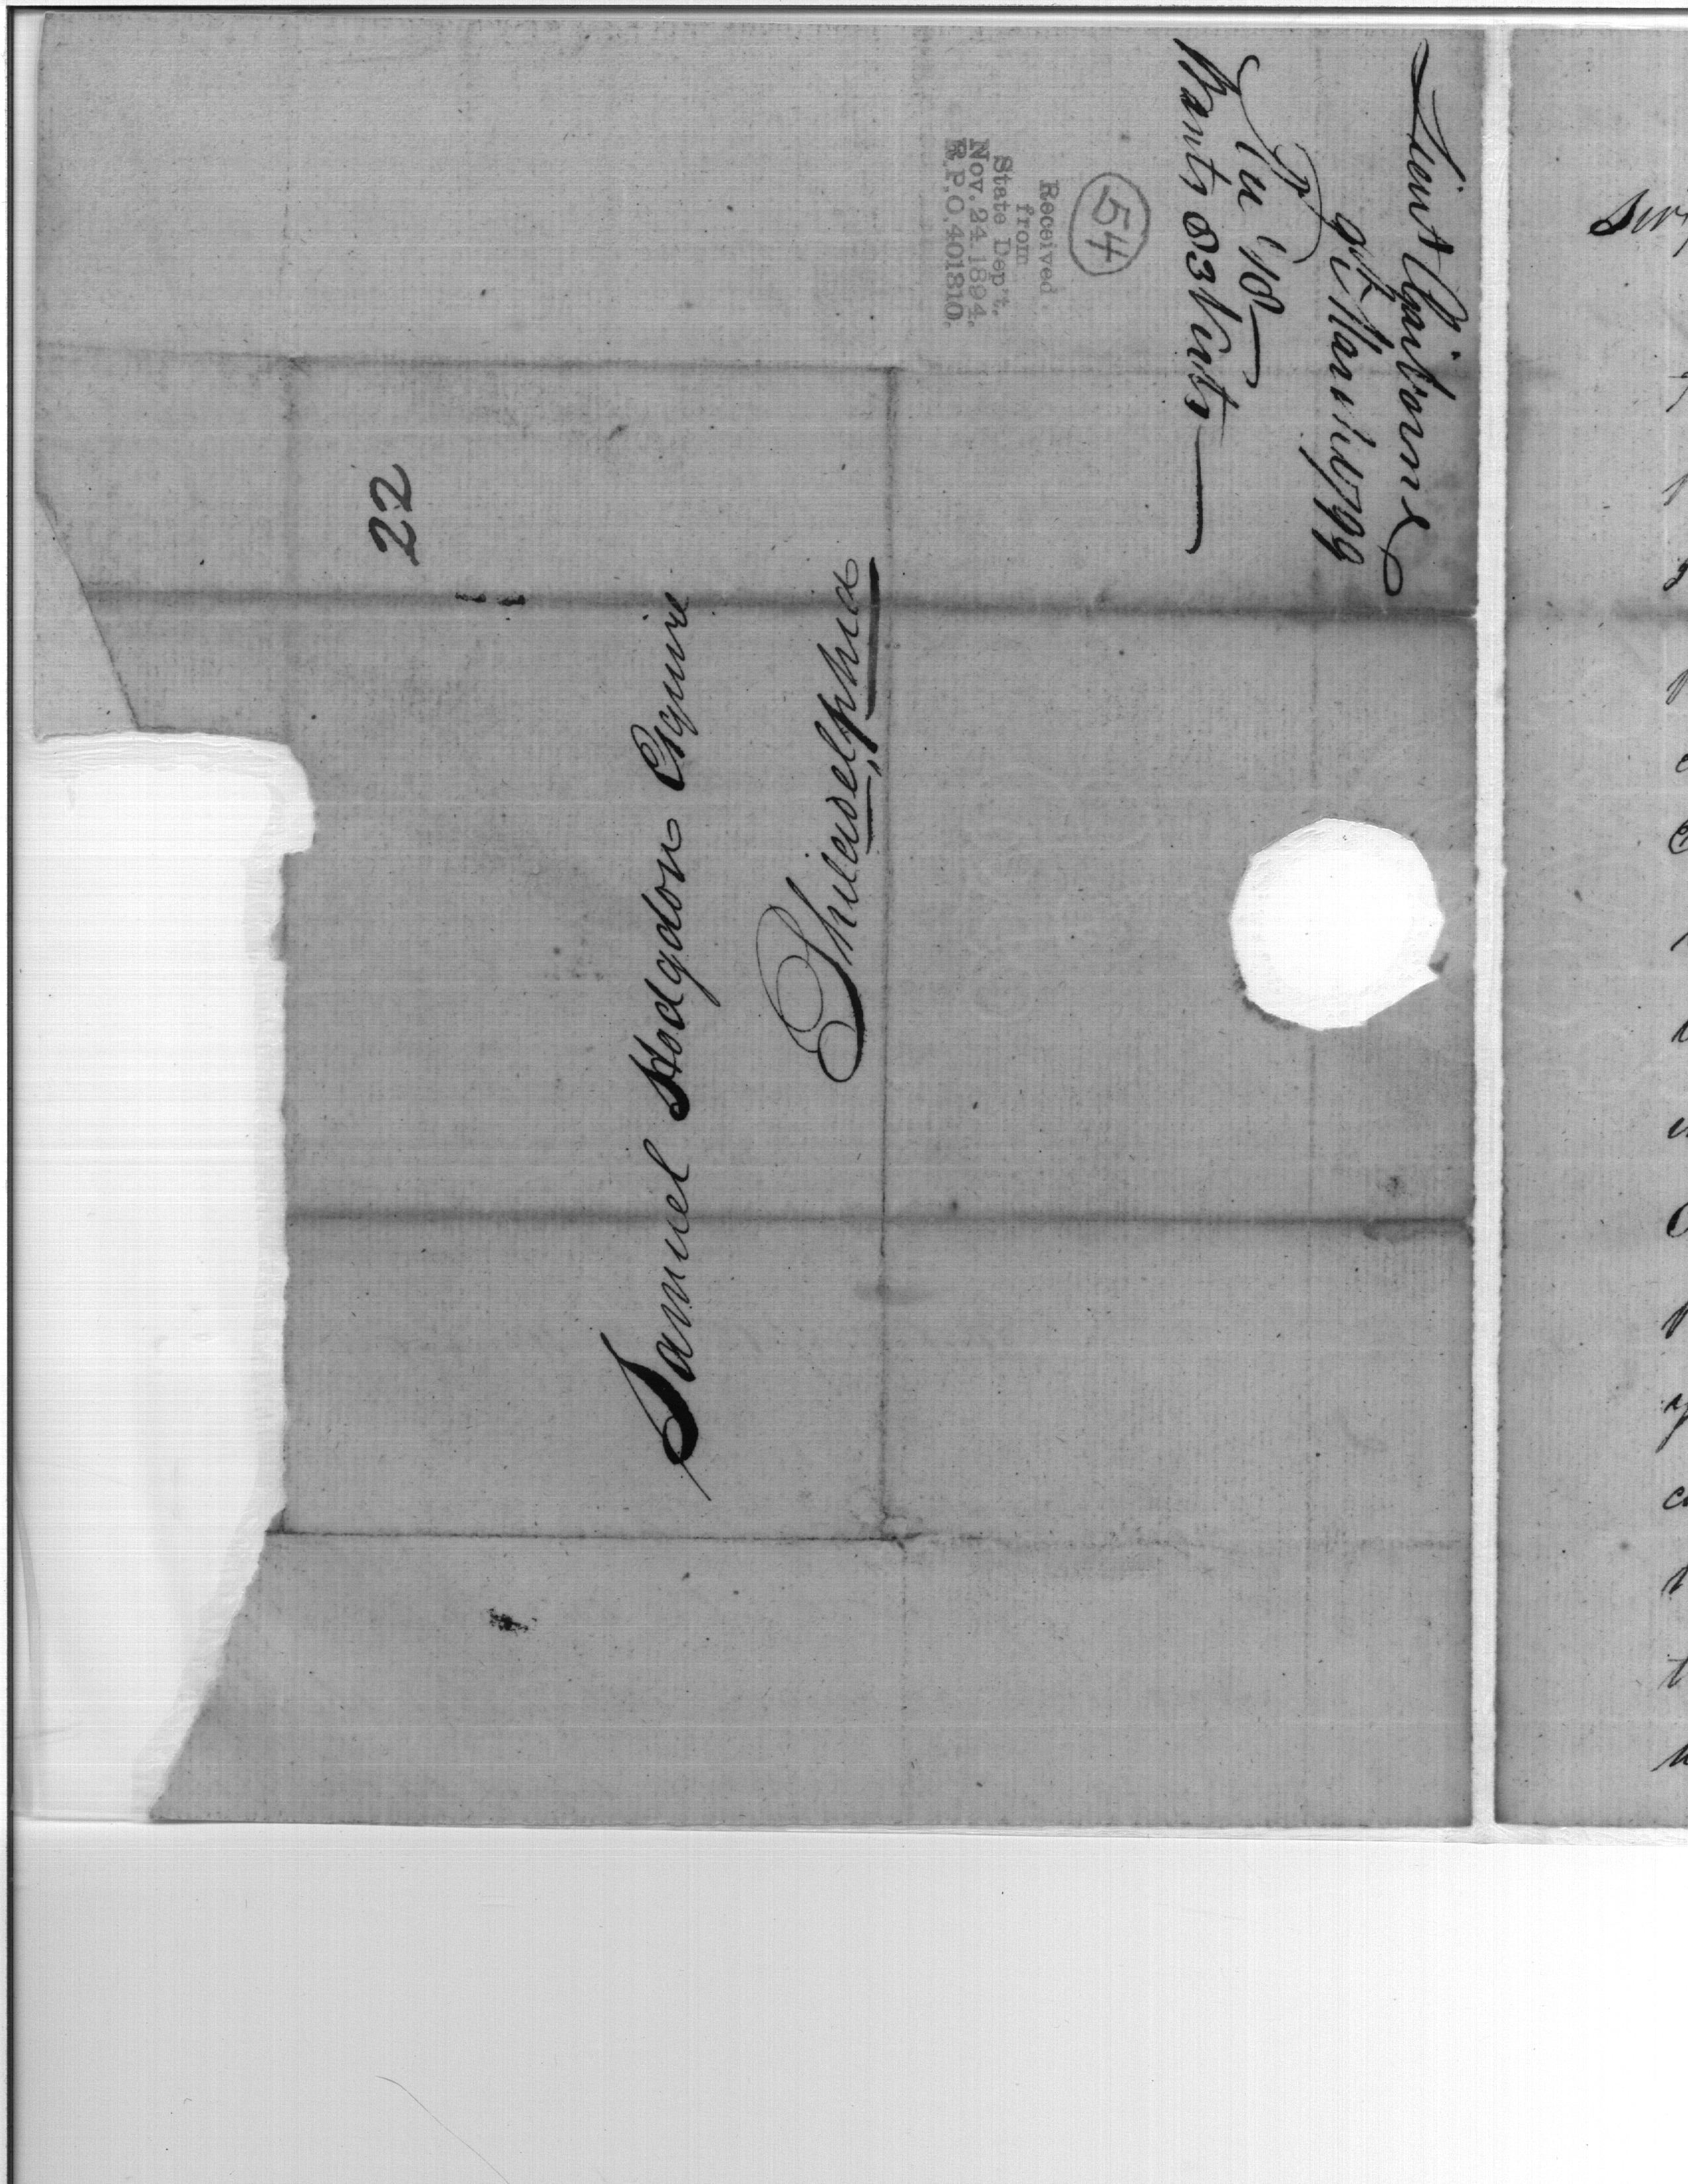 Lieut Claiborne
9th March 1799
Wants
54
Received
from
State Dep't.
Nov. 24. 1894.
R.P.O. 401810.
22
Samuel Hodgdon Esquire
Philadelphia
Sir,